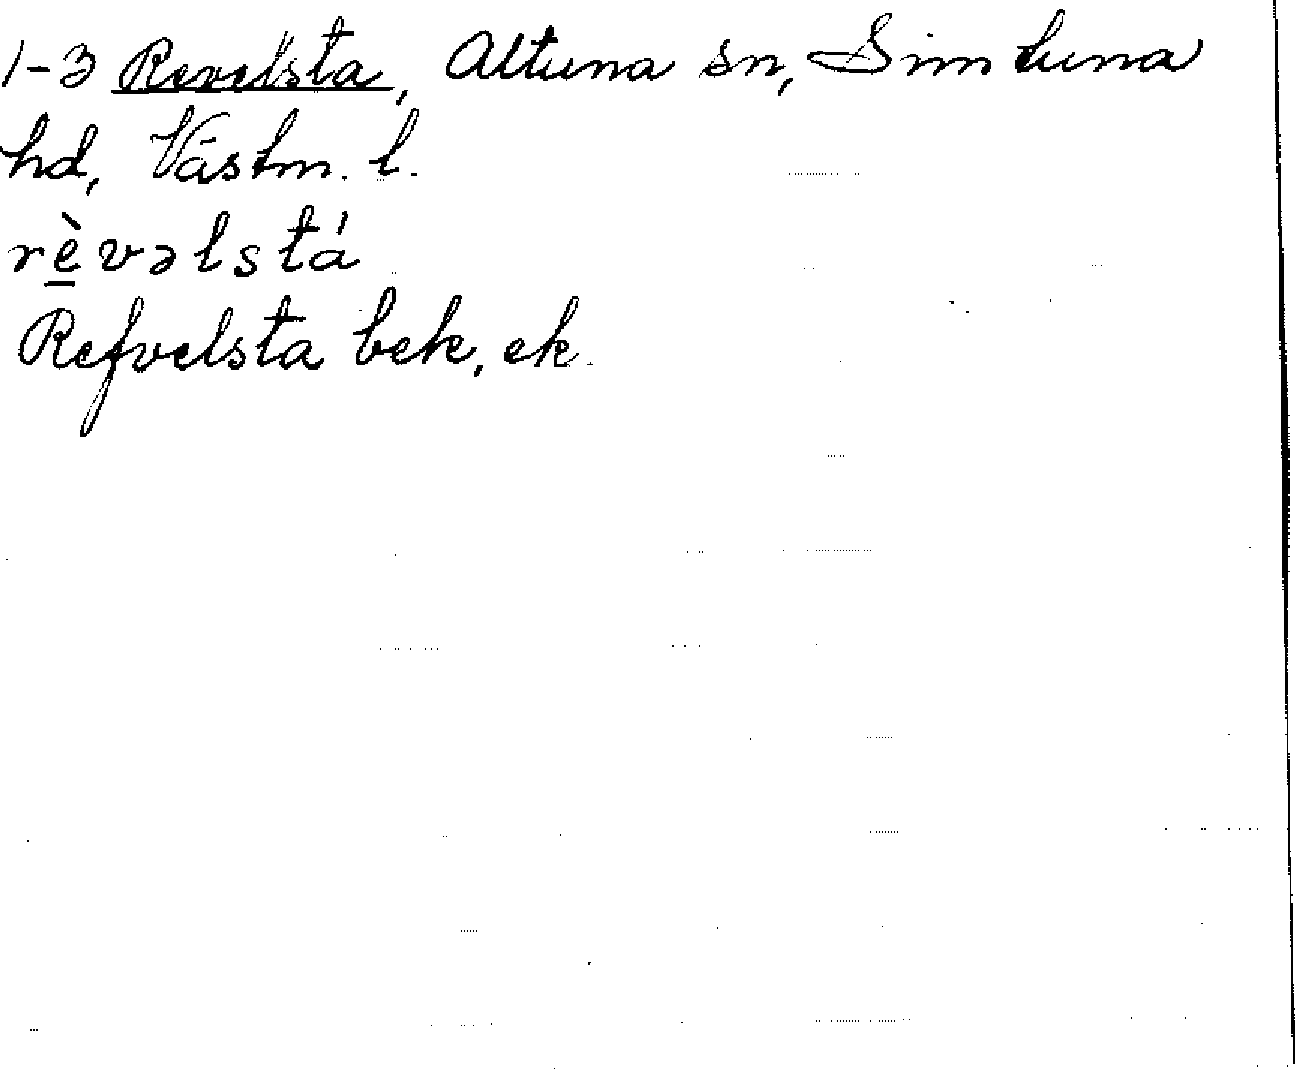 1-3 Revelsta, Altuna sn, Simtuna
hd, Västm. l.
rè̲vəlstá
Refvelsta bek, ek.